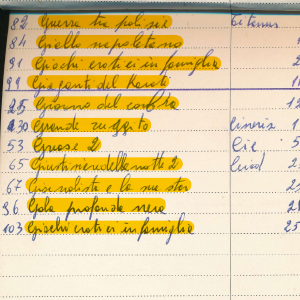 82 Guerra tra polizie
84 Giallo napoletano
91 Giochi erotici in famiglia 2
99 Giganti del Karatè 1
25 Giorno del cobra 1
130 Grande ruggito Cineriz 1
53 Grease 2 Cic 5
65 Giustiziere della notte 2
67 Giornalista e la sua star 2
96 Gola profonda nera 2
103 Giochi erotici in famiglia 25